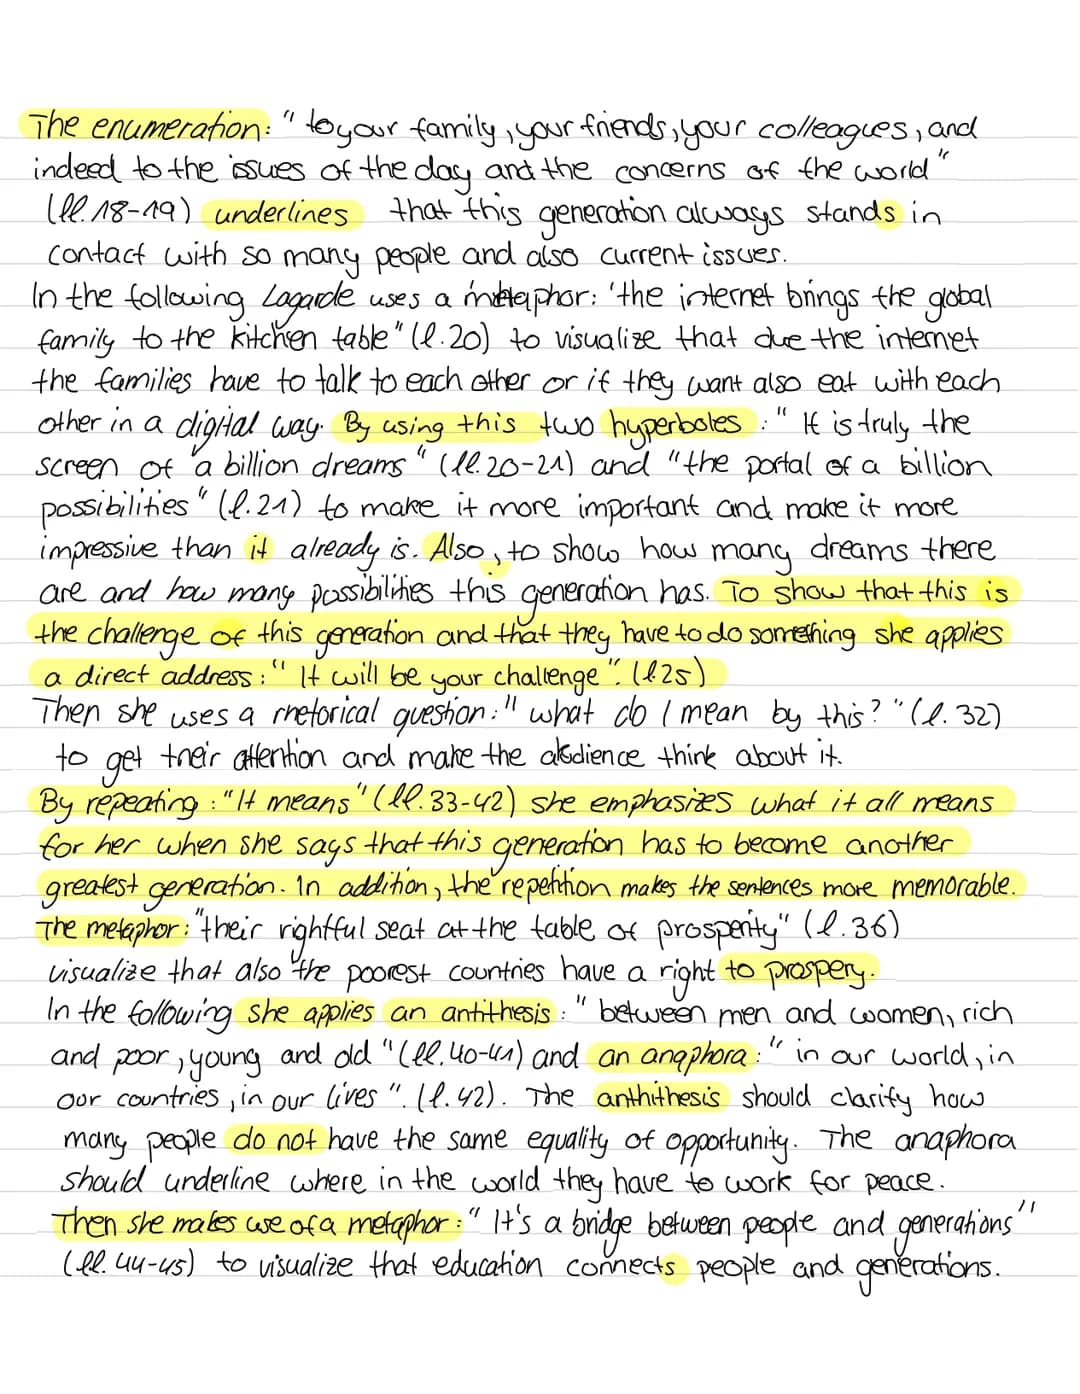 The enumeration: "to your family, your friends, your colleagues, and
indeed to the issues of the day and the concerns of the world"
(ll. 18-19) underlines that this generation always stands in
contact with so many people and also current issues.
In the following Lagarde uses a metaphor: 'the internet brings the global
family to the kitchen table" (l. 20) to visualize that due the internet
the families have to talk to each other or if they want also eat with each
other in a digital way. By using this two hyperboles: "It is truly the
screen of a billion dreams" (ll. 20-21) and "the portal of a billion
possibilities" (l. 21) to make it more important and make it more
impressive than it already is. Also, to show how many dreams there
are and how many possibilities this generation has. To show that this is
the challenge of this generation and that they have to do something she applies
a direct address: "It will be your challenge". (l. 25)
Then she uses a rhetorical question: "what do I mean by this?" (l. 32)
to get their attention and make the audience think about it.
By repeating: "It means" (ll. 33-42) she emphasizes what it all means
for her when she says that this generation has to become another
greatest generation. In addition, the repetition makes the sentences more memorable.
The metaphor: "their rightful seat at the table of prosperity" (l. 36)
visualize that also the poorest countries have a right to prospery.
In the following she applies an antithesis: "between men and women, rich
and poor, young and old" (ll. 40-41) and an anaphora: "in our world, in
our countries, in our lives". (l. 42). The anthithesis should clarify how
many people do not have the same equality of opportunity. The anaphora
should underline where in the world they have to work for peace.
Then she makes use of a metaphor: "It's a bridge between people and generations"
(ll. 44-45) to visualize that education connects people and generations.